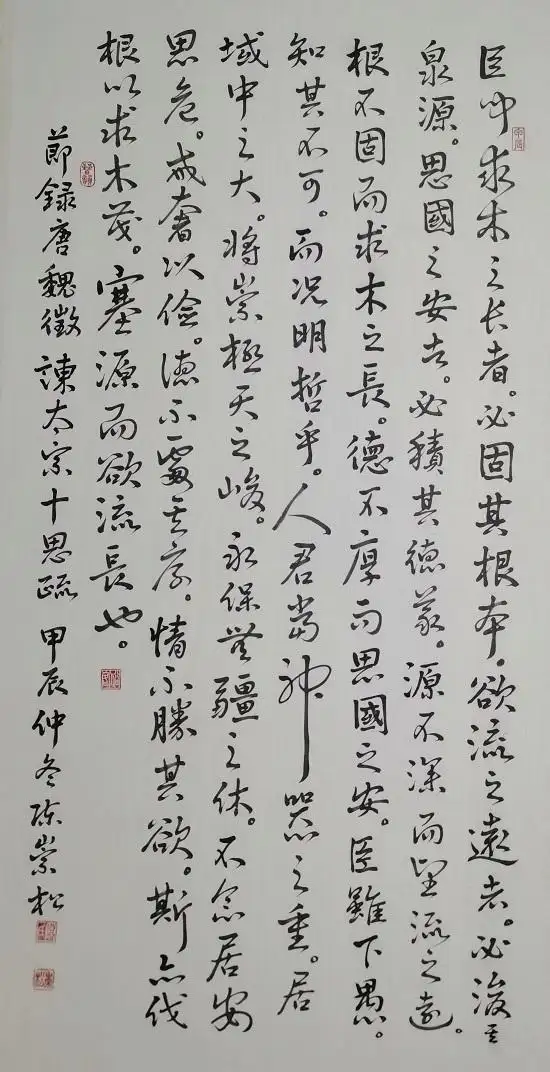 臣闻求木之长者。必固其根本。欲流之遠者。必浚其
泉源。思國之安者。必積其德義。源不深而望流之遠。
根不固而求木之長。德不厚而思國之安。臣雖下愚。
知其不可。而况明哲乎。人君當神器之重。居
域中之大。将崇極天之峻。永保無疆之休。不念居安
思危。戒奢以儉。德不處其厚。情不勝其欲。斯亦伐
根以求木茂。塞源而欲流長也。
節録唐魏徵諫太宗十思疏 甲辰仲冬陈崇松